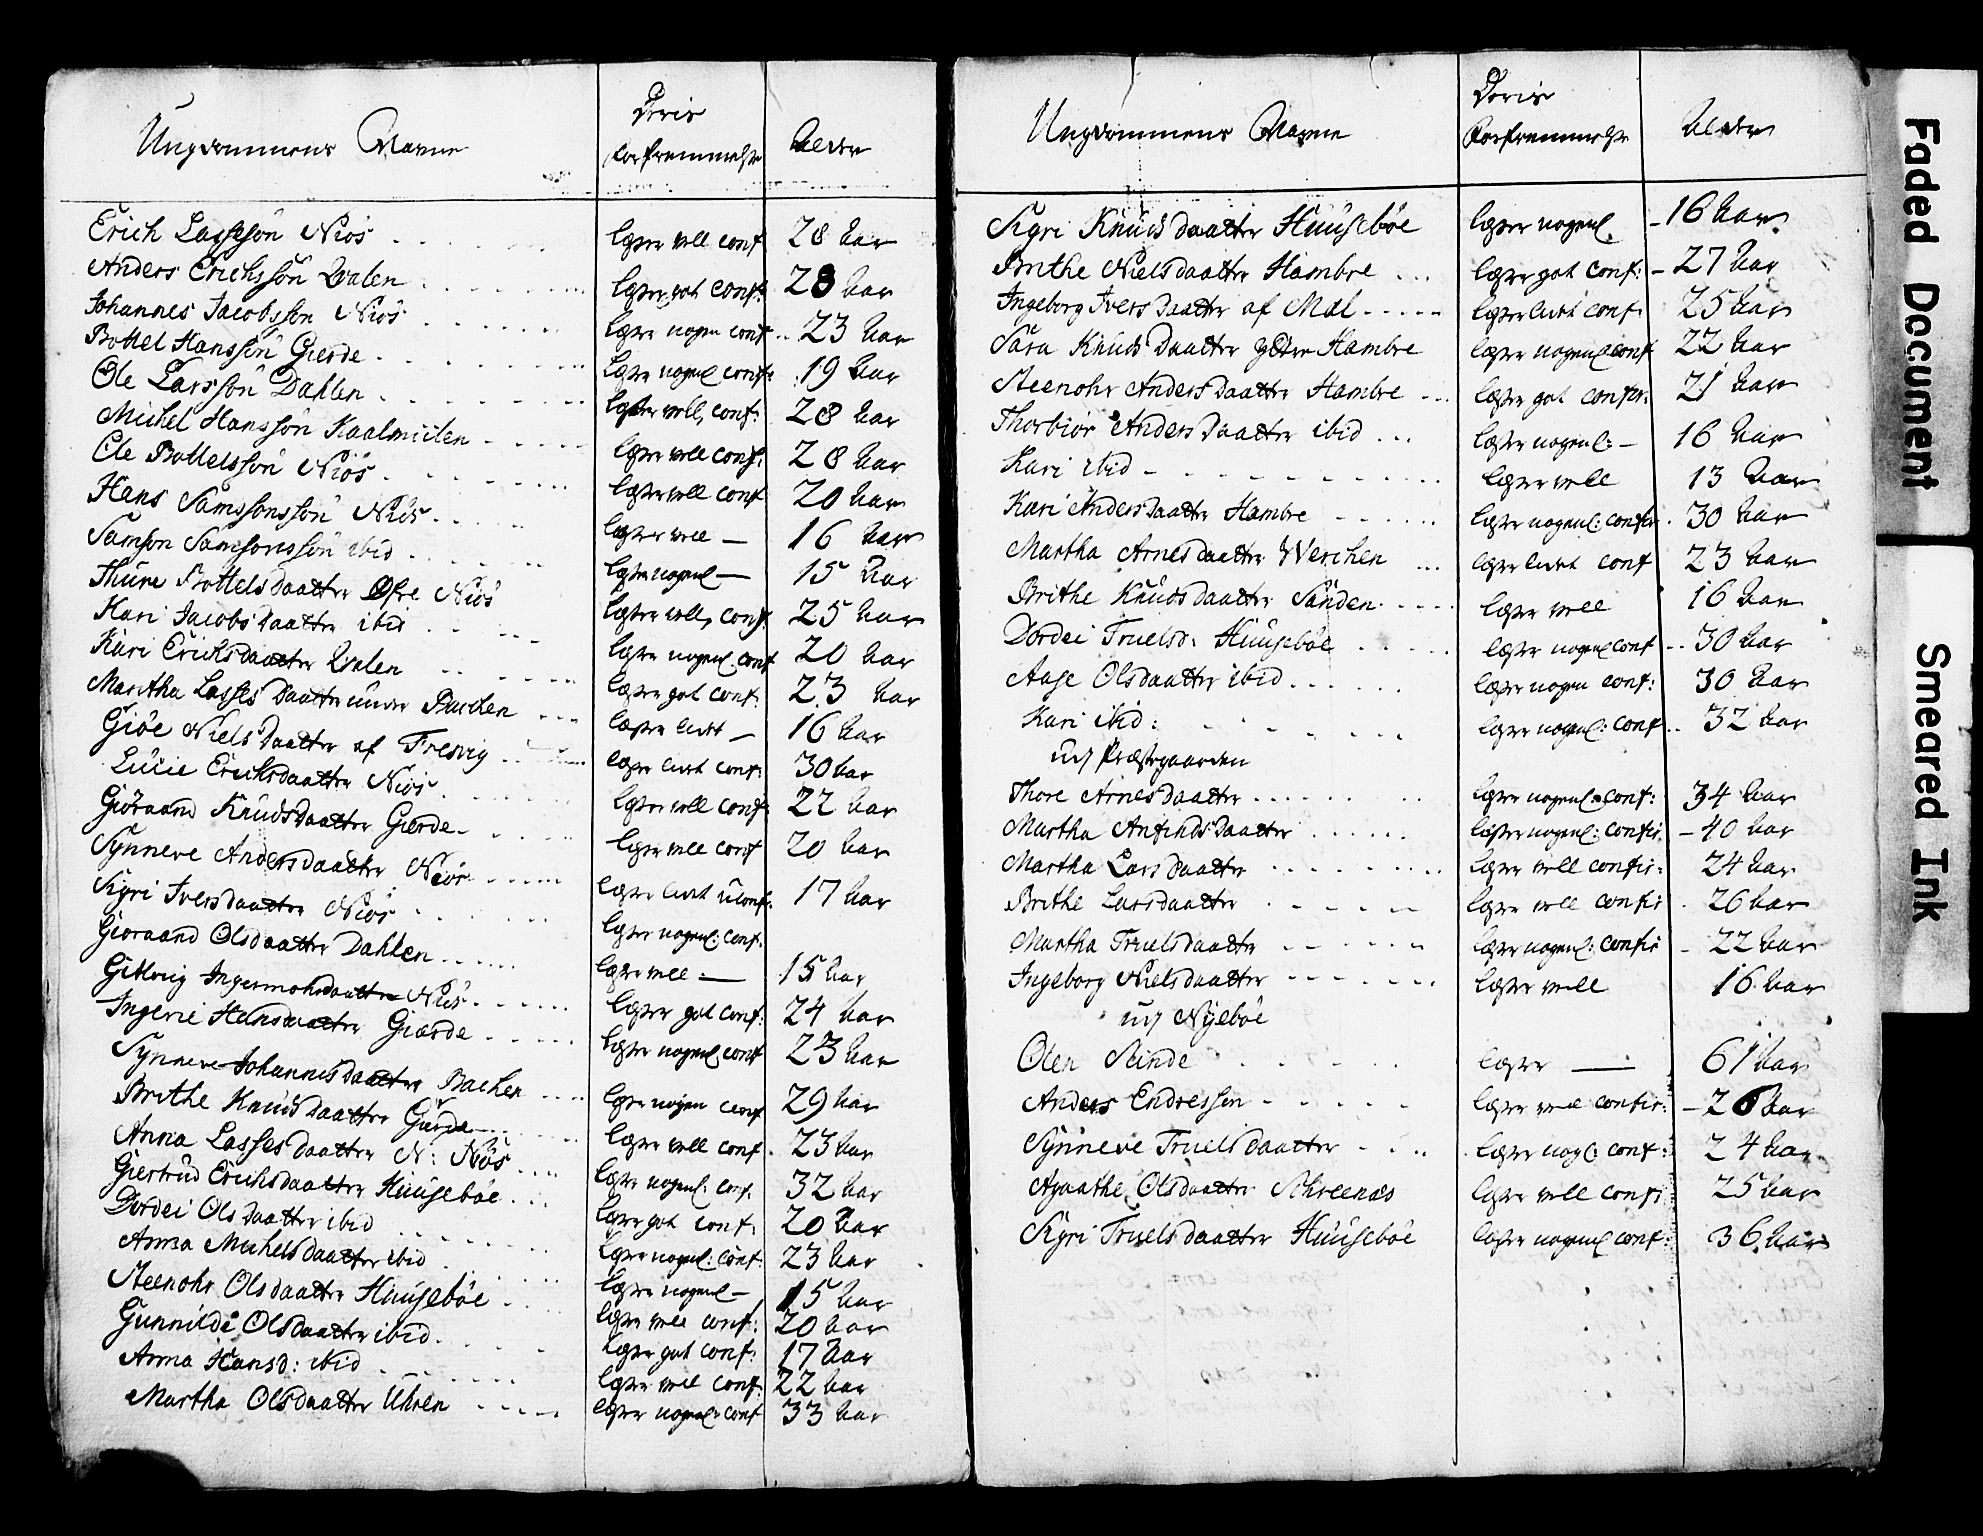 Ungdommens Navne Deris Forfremmelse Alder
Erich Lassesön Niös læser vell conf 28 Aar
Anders Erichssön Qvalen læser got conf: 28 Aar
Johannes Jacobssön Niös læser nogen conf 23 Aar
Bottel Hanssön Gierde læser nogenl conf: 19 Aar
Ole Larssön Dahlen læser vell, conf: 28 Aar
Michel Hanssön Kaalmiilen læser vell conf: 28 Aar
Ole Bottelssön Niös læser vell conf 20 Aar
Hans Samssonssön Niös læser vell — 16 Aar
Samson Samsonssön ibid læser nogenl — 15 Aar
Thure Bottelsdaatter Øfre Niös læser vell, conf. 25 Aar
Kari Jacobsdaatter ibid læser nogenl. conf 20 Aar
Kari Erichsdaatter Qvalen læser got conf: 23 Aar
Maritha Lasses Daatter under Bachen læser lidet — 16 Aar
Giöe Nielsdaatter af Fresvig læser lidet conf: 30 Aar
Lucie Erichsdaatter Niös læser vell conf: 22 Aar
Giöraand Knudsdaatter Gierde læser vell conf 20 Aar
Synneve Andersdaatter Niös læser lidet uconf: 17 Aar
Sigri Iversdaatter Niös læser nogenl: conf.
Gioraand Olsdaatter Dahlen læser vell — 15 Aar
Gitlovig Ingermohrdaatter Niös læser got conf: 24 Aar
Ingerie Hansdaatter Giærde læser nogenl conf 23 Aar
Synneve Johannesdaatter Bachen læser nogen conf 29 Aar
Brithe Knudsdaatter Gierde læser vell conf. 23 Aar
Anna Lassesdaatter N: Niös læser nogenl: conf. 32 Aar
Giertrud Erichsdaatter Huusebøe læser got conf: 20 Aar
Dordei Olsdaatter ibid læser nogenl: conf: 23 Aar
Anna Michelsdaatter ibid læser nogenl — 15 Aar
Steenohr Olsdaatter Huusebøe læser vell conf: 20 Aar
Gunnilde Olsdaatter ibid læser got conf: 17 Aar
Anna Hansd: ibid læser vell conf: 22 Aar
Martha Olsdaatter Uhren læser nogenl: conf 33 Aar
Ungdommens Navne Deris Forfremmelse Alder
Sigri Knudsdaatter Huusebøe læser nogenl. — 16 Aar
Brithe Nielsdaatter Hambre læser got conf: — 27 Aar
Ingeborg Iversdaatter af Mdl læser lidet conf. 25 Aar
Sara Knudsdaatter Hambre læser nogenl conf 22 Aar
Steenohr Andersdaatter Hambre læser got confir: 21 Aar
Thorbiör Andersdaatter ibid læser nogenl: — 16 Aar
Kari ibid læser vell 13 Aar
Kari Andersdaatter Hambre læser nogenl: confir. 30 Aar
Martha Arnesdaatter Werchen læser lidet conf 23 Aar
Brithe Knudsdaatter Sanden læser vell 16 Aar
Dordei Truelsd: Huusebøe læser nogenl conf 30 Aar
Aase Olsdaatter ibid læser nogen conf: 30 Aar
Kari ibid: læser nogenl: conf 32 Aar
udj Præstegaarden
Thore Arnesdaatter læser nogenl: conf: 34 Aar
Martha Anfindsdaatter læser nogenl: confir. — 40 Aar
Martha Larsdaatter læser vell confir: 24 Aar
Brithe Larsdaatter læser vell confir 26 Aar
Martha Truelsdaatter læser nogenl: confir — 22 Aar
Ingeborg Nielsdaatter læser vell 16 Aar
udj Nyebøe
Olen Stinde læser — 61 Aar
Anders Endressen læser vell confir: — 26 Aar
Synneve Truelsdaatter læser nogl: conf: 24 Aar
Agaathe Olsdaatter Schreenæs læser vell confi: 25 Aar
Sigri Truelsdaatter Huusebøe læser nogenl conf: 36 Aar
Faded Document
Smeared Ink